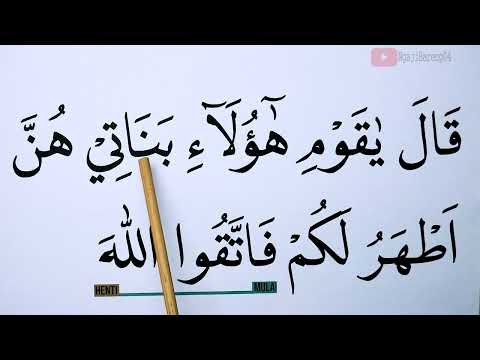 NgajiBareng04
قَالَ يٰقَوْمِ هٰٓؤُلَآءِ بَنَاتِيْ هُنَّ
اَطْهَرُ لَكُمْ فَاتَّقُوا اللهَ
HENTI MULA